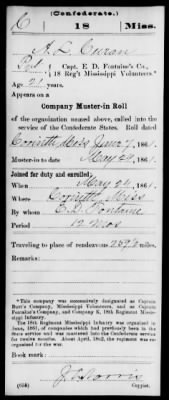 (Confederate.)
C 18 Miss.
A. L. Curan
Pvt, Capt. E. D. Fontaine's Co.,
18 Reg't Mississippi Volunteers.*
Age 21 years.
Appears on a
Company Muster-in Roll
of the organization named above, called into the
service of the Confederate States. Roll dated
Corinth Miss June 7, 1861.
Muster-in to date May 24, 1861.
Joined for duty and enrolled:
When May 24, 1861.
Where Corinth Miss
By whom E. D. Fontaine
Period 12 mos
Traveling to place of rendezvous miles.
Remarks:
*This company was successively designated as Captain
Burt's Company, Mississippi Volunteers, and as
Captain Fontaine's Company, and Company K, 18th Regiment Mississippi Infantry.
The 18th Regiment Mississippi Infantry was organized in
June, 1861, of companies which had previously been in the
State service and was mustered into the Confederate service
for twelve months. About April, 1862, the regiment was re-
organized for the war.
Book mark:
Copyist.